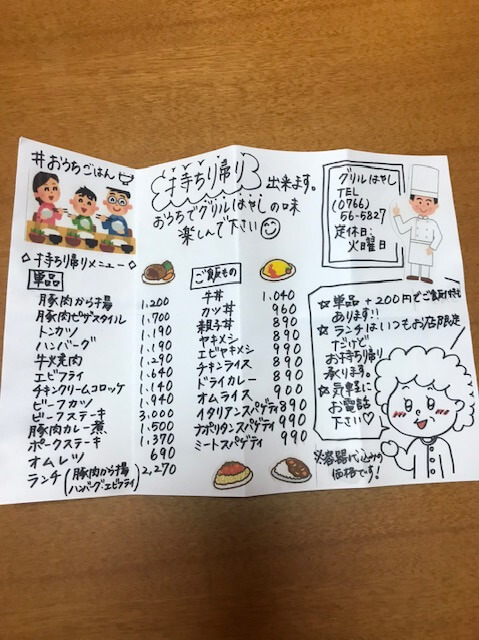 #おうちごはん
持ち帰り出来ます。
おうちでグリルはやしの味
楽しんで下さい
グリルはやし
TEL
(0766)
56-5827
定休日:
火曜日
◇持ち帰りメニュー◇
単品
豚肉から揚 1,200
豚肉ピザスタイル 1,700
トンカツ 1,190
ハンバーグ 1,190
牛焼肉 1,290
エビフライ 1,640
チキンクリームコロッケ 1,140
ビーフカツ 1,940
ビーフステーキ 3,000
豚肉カレー煮 1,500
ポークステーキ 1,370
オムレツ 690
ランチ(豚肉から揚 ハンバーグ・エビフライ) 2,270
ご飯もの
牛丼 1,040
カツ丼 960
親子丼 890
ヤキメシ 890
エビヤキメシ 990
チキンライス 890
ドライカレー 890
オムライス 900
イタリアンスパゲティ 890
ナポリタンスパゲティ 990
ミートスパゲティ 990
☆単品+200円でご飯付も
あります!!
☆ランチはいつもお店限定
だけど
お持ち帰り
承ります。
☆気軽に
お電話
下さい♡
※容器代込みの
価格です!